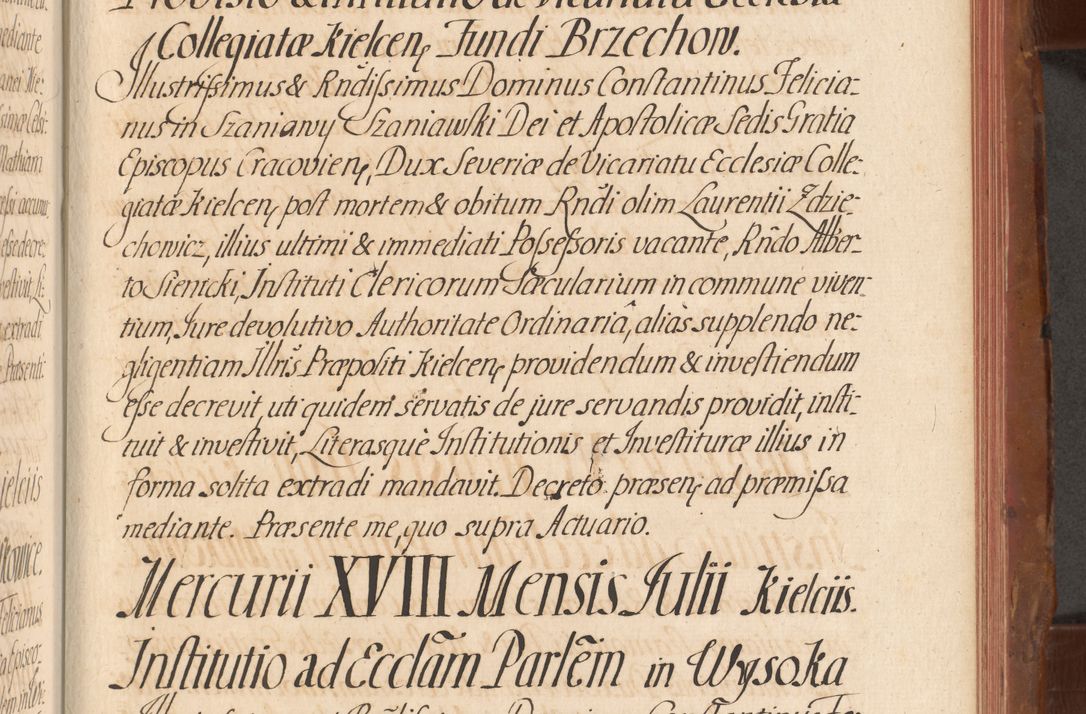 Provisio & Institutio de Vicariatu Ecclesiæ
Collegiatæ Kielcen, Fundi Brzechow.
Illustrissimus & Rndissimus Dominus Constantinus Felicia-
nus in Szaniawy Szaniawski Dei et Apostolicæ Sedis Gratia
Episcopus Cracovien, Dux Severiæ de Vicariatu Ecclesiæ Colle-
giatæ Kielcen, post mortem & obitum Rndi olim Laurentii Zdzie-
chowicz, illius ultimi & immediati Possessoris vacante, Rndo Alber-
to Sienicki, Instituti Clericorum Sæcularium in commune viven-
tium, Jure devolutivo Authoritate Ordinariâ, aliàs supplendo ne-
gligentiam Illris Præpositi Kielcen, providendum & investiendum
esse decrevit, uti quidem servatis de jure servandis providit, insti-
tuit & investivit, Literasquè Institutionis et Investituræ illius in
forma solita extradi mandavit. Decreto præsen, ad præmissa
mediante. Præsente me, quo supra Actuario.
Mercurii XVIII Mensis Julii Kielciis.
Institutio ad Ecclãm Parlẽm in Wysoka